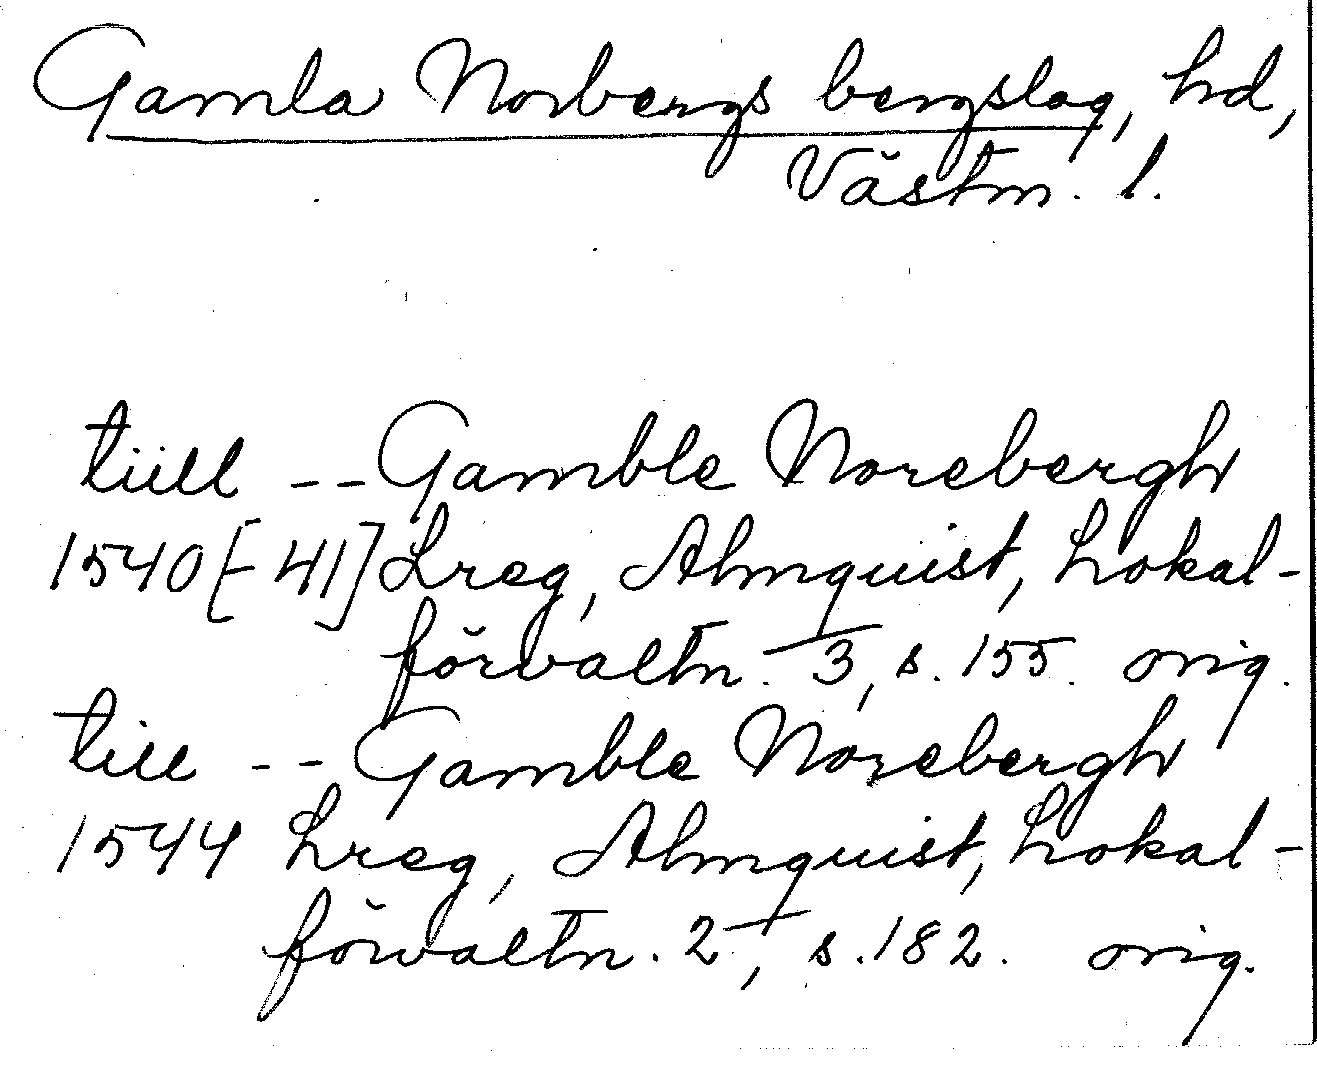 Gamla Norbergs bergslag, hd,
Västm. l.
tiill -- Gamble Norebergh
1540[-41] Lreg, Almquist, Lokal-
förvaltn. 3, s. 155. orig.
till -- Gamble Norebergh
1544 Lreg, Almquist, Lokal-
förvaltn. 2, s. 182. orig.